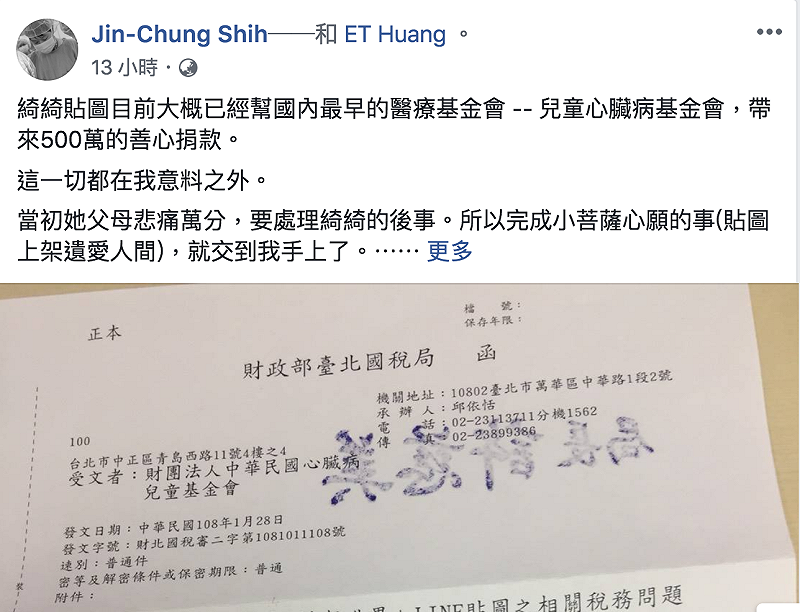 Jin-Chung Shih──和 ET Huang 。
13 小時 ·
綺綺貼圖目前大概已經幫國內最早的醫療基金會 -- 兒童心臟病基金會，帶
來500萬的善心捐款。
這一切都在我意料之外。
當初她父母悲痛萬分，要處理綺綺的後事。所以完成小菩薩心願的事(貼圖
上架遺愛人間)，就交到我手上了。⋯⋯ 更多
正本
檔　　號：
保存年限：
財政部臺北國稅局　函
機關地址：10802臺北市萬華區中華路1段2號
承 辦 人：邱依恬
電　　話：02-23113711分機1562
傳　　真：02-23899386
100
台北市中正區青島西路11號4樓之4
受文者：財團法人中華民國心臟病
兒童基金會
發文日期：中華民國108年1月28日
發文字號：財北國稅審二字第1081011108號
速別：普通件
密等及解密條件或保密期限：普通
附件：
裝
LINE貼圖之相關稅務問題